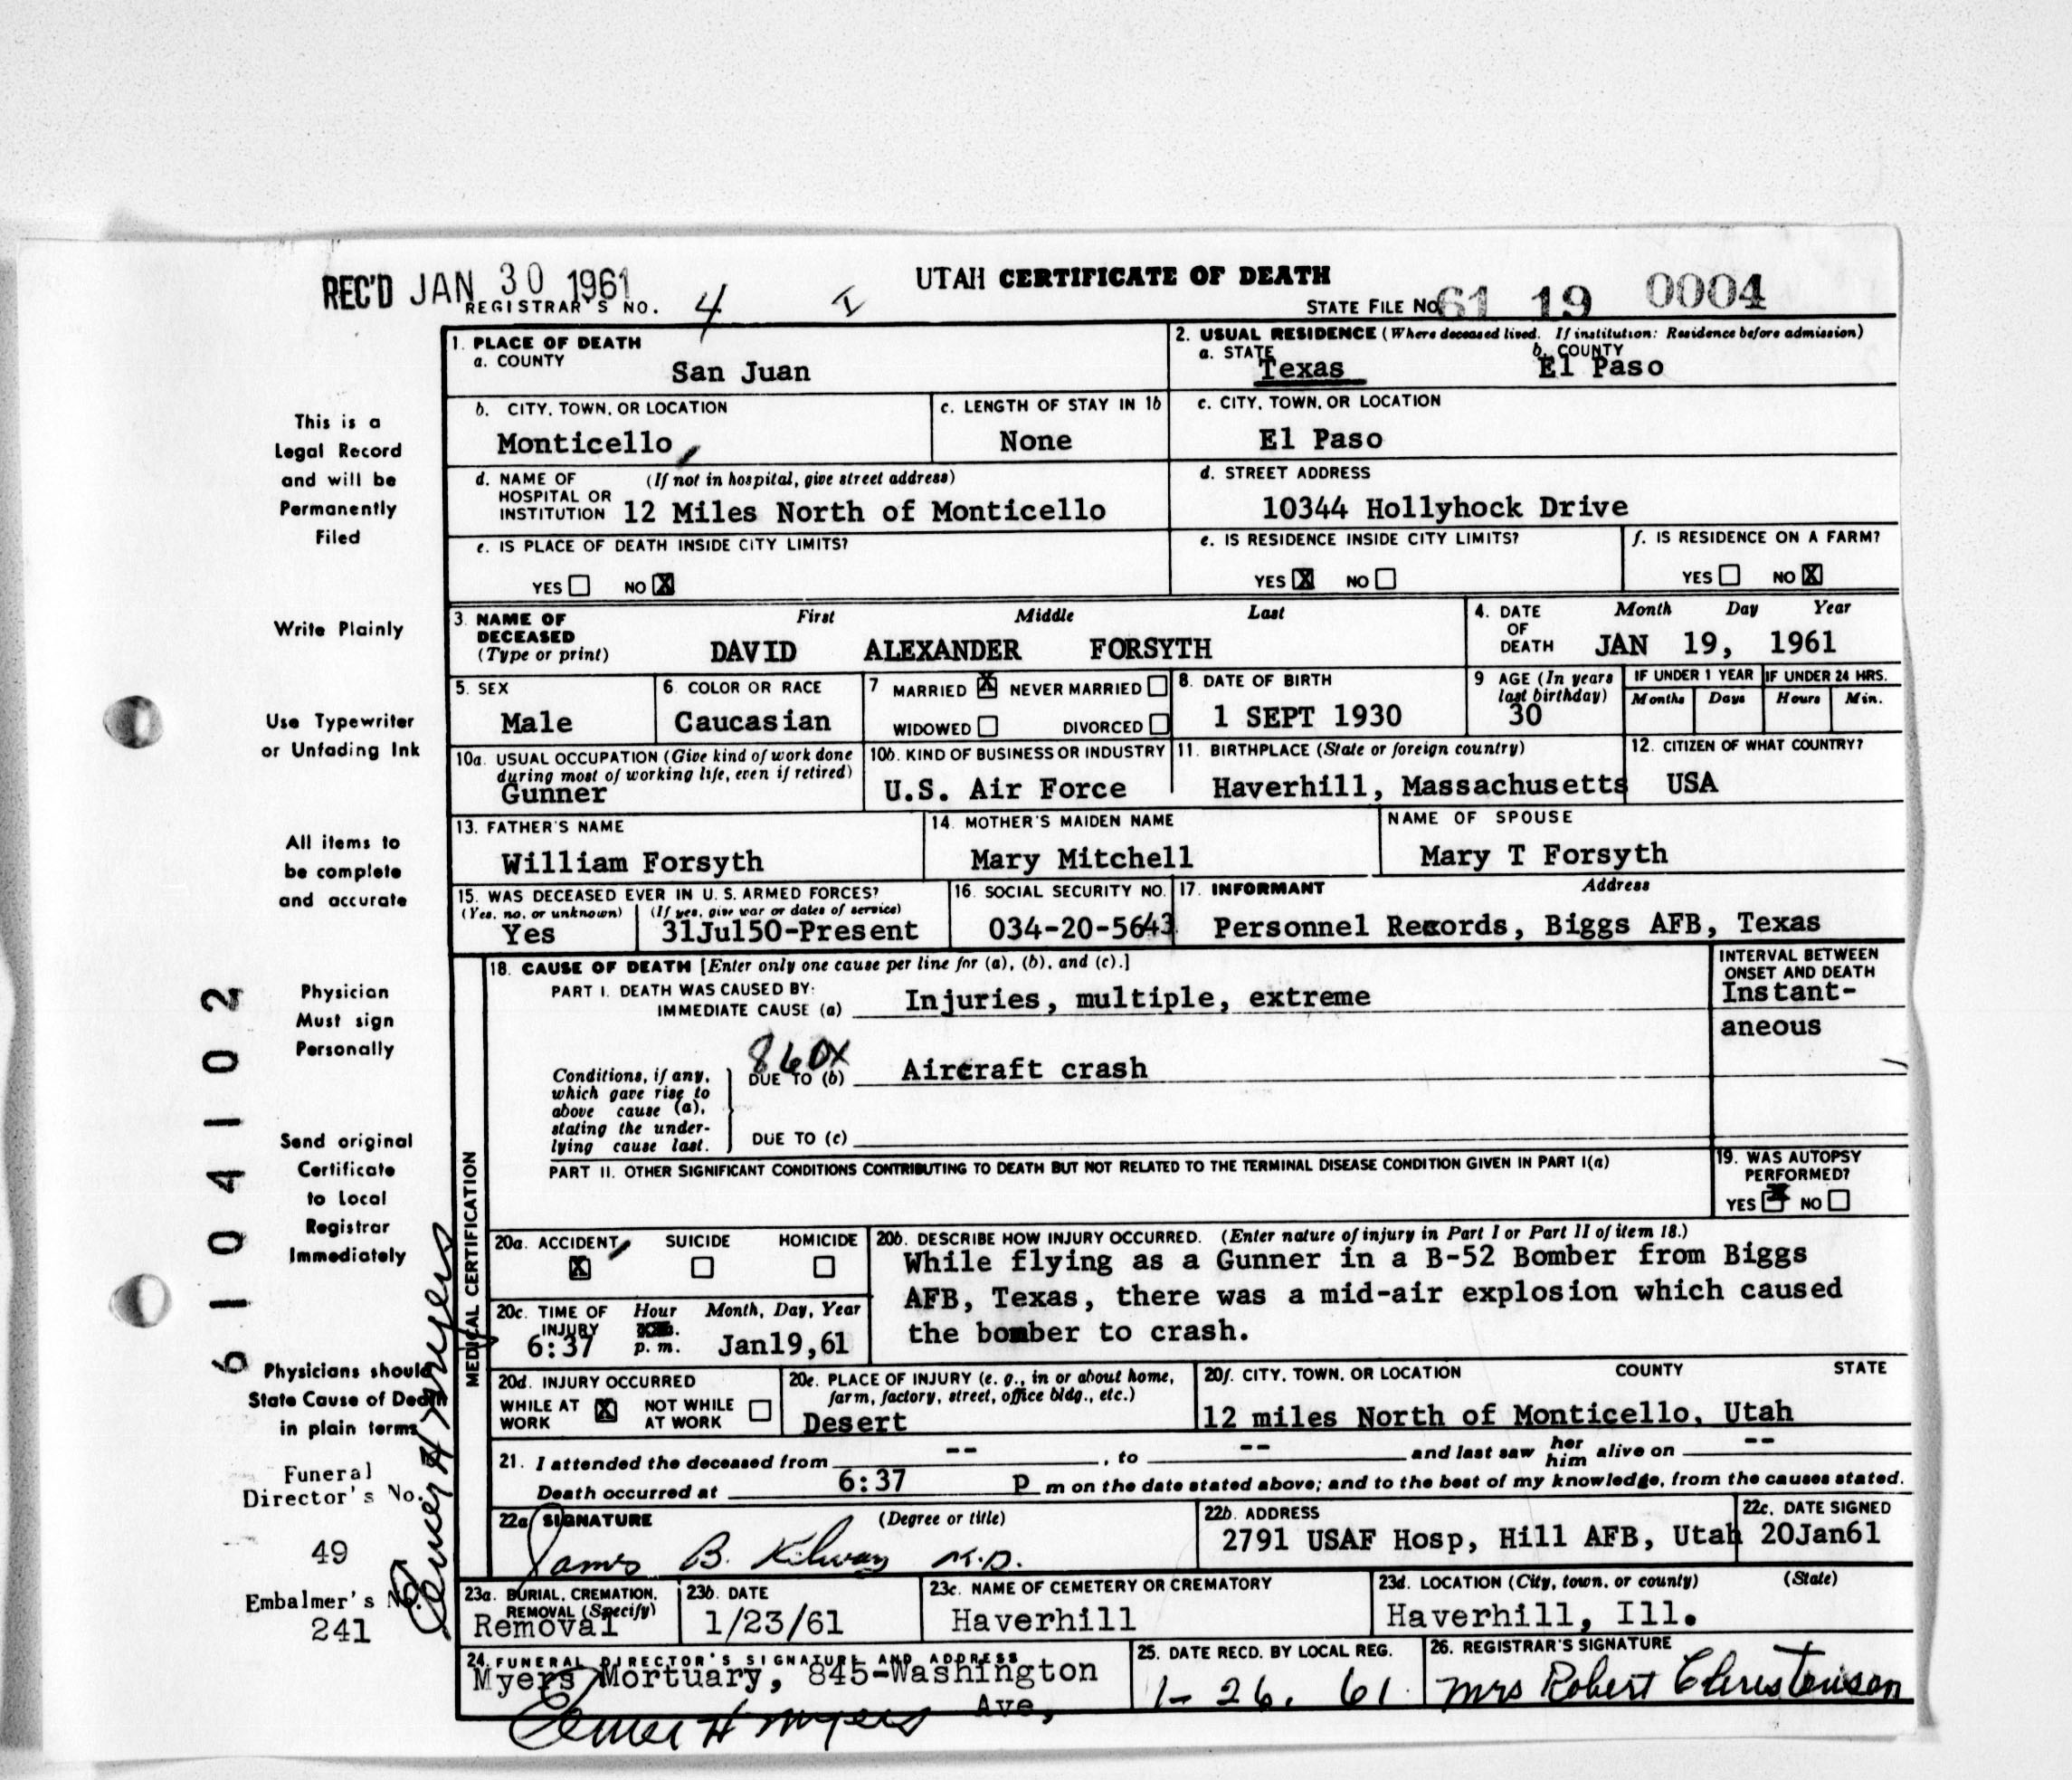 REC'D JAN 30 1961
UTAH CERTIFICATE OF DEATH
REGISTRAR'S NO. 4
STATE FILE NO. 61 19 0004
1. PLACE OF DEATH
a. COUNTY
San Juan
2. USUAL RESIDENCE (Where deceased lived. If institution: Residence before admission)
a. STATE Texas b. COUNTY El Paso
b. CITY, TOWN, OR LOCATION
Monticello
c. LENGTH OF STAY IN 1b
None
c. CITY, TOWN, OR LOCATION
El Paso
d. NAME OF HOSPITAL OR INSTITUTION (If not in hospital, give street address)
12 Miles North of Monticello
d. STREET ADDRESS
10344 Hollyhock Drive
e. IS PLACE OF DEATH INSIDE CITY LIMITS?
YES NO X
e. IS RESIDENCE INSIDE CITY LIMITS?
YES X NO
f. IS RESIDENCE ON A FARM?
YES NO X
3. NAME OF DECEASED (Type or print)
First Middle Last
DAVID ALEXANDER FORSYTH
4. DATE OF DEATH
Month Day Year
JAN 19, 1961
5. SEX
Male
6. COLOR OR RACE
Caucasian
7 MARRIED X NEVER MARRIED
WIDOWED DIVORCED
8. DATE OF BIRTH
1 SEPT 1930
9 AGE (In years last birthday)
30
IF UNDER 1 YEAR
Months Days
IF UNDER 24 HRS.
Hours Min.
10a. USUAL OCCUPATION (Give kind of work done during most of working life, even if retired)
Gunner
10b. KIND OF BUSINESS OR INDUSTRY
U.S. Air Force
11. BIRTHPLACE (State or foreign country)
Haverhill, Massachusetts
12. CITIZEN OF WHAT COUNTRY?
USA
13. FATHER'S NAME
William Forsyth
14. MOTHER'S MAIDEN NAME
Mary Mitchell
NAME OF SPOUSE
Mary T Forsyth
15. WAS DECEASED EVER IN U.S. ARMED FORCES?
(Yes, no, or unknown) (If yes, give war or dates of service)
Yes 31Jul50-Present
16. SOCIAL SECURITY NO.
034-20-5643
17. INFORMANT Address
Personnel Records, Biggs AFB, Texas
MEDICAL CERTIFICATION
18. CAUSE OF DEATH [Enter only one cause per line for (a), (b), and (c).]
PART I. DEATH WAS CAUSED BY:
IMMEDIATE CAUSE (a) Injuries, multiple, extreme
INTERVAL BETWEEN ONSET AND DEATH
Instant-
aneous
860X
Conditions, if any, which gave rise to above cause (a), stating the under-lying cause last.
DUE TO (b) Aircraft crash
DUE TO (c)
PART II. OTHER SIGNIFICANT CONDITIONS CONTRIBUTING TO DEATH BUT NOT RELATED TO THE TERMINAL DISEASE CONDITION GIVEN IN PART I(a)
19. WAS AUTOPSY PERFORMED?
YES X NO
20a. ACCIDENT SUICIDE HOMICIDE
X
20b. DESCRIBE HOW INJURY OCCURRED. (Enter nature of injury in Part I or Part II of item 18.)
While flying as a Gunner in a B-52 Bomber from Biggs
AFB, Texas, there was a mid-air explosion which caused
the bomber to crash.
20c. TIME OF INJURY Hour Month, Day, Year
6:37 p. m. Jan19,61
20d. INJURY OCCURRED
WHILE AT WORK X NOT WHILE AT WORK
20e. PLACE OF INJURY (e. g., in or about home, farm, factory, street, office bldg., etc.)
Desert
20f. CITY, TOWN, OR LOCATION COUNTY STATE
12 miles North of Monticello, Utah
21. I attended the deceased from -- , to -- and last saw her him alive on --
Death occurred at 6:37 P m on the date stated above; and to the best of my knowledge, from the causes stated.
22a SIGNATURE (Degree or title)
James B. M.D.
22b. ADDRESS
2791 USAF Hosp, Hill AFB, Utah
22c. DATE SIGNED
20Jan61
23a. BURIAL, CREMATION, REMOVAL (Specify)
Removal
23b. DATE
1/23/61
23c. NAME OF CEMETERY OR CREMATORY
Haverhill
23d. LOCATION (City, town, or county) (State)
Haverhill, Ill.
24. FUNERAL DIRECTOR'S SIGNATURE AND ADDRESS
Myers Mortuary, 845-Washington
Ave,
Elmer H Myers
25. DATE RECD. BY LOCAL REG.
1-26. 61.
26. REGISTRAR'S SIGNATURE
Mrs Robert Christensen
This is a
Legal Record
and will be
Permanently
Filed
Write Plainly
Use Typewriter
or Unfading Ink
All items to
be complete
and accurate
Physician
Must sign
Personally
Send original
Certificate
to Local
Registrar
Immediately
Physicians should
State Cause of Death
in plain terms
Funeral
Director's No.
49
Embalmer's No.
241
Elmer H Myers
6104102